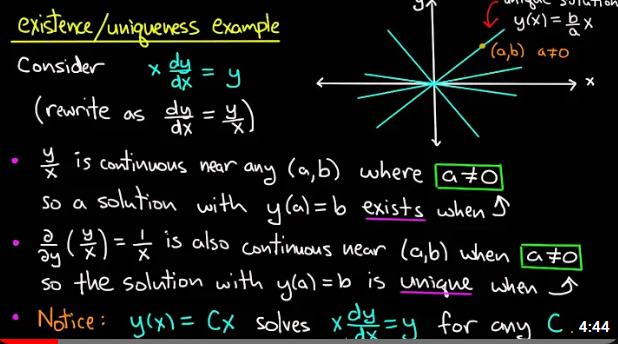 existence/uniqueness example
Consider x dy/dx = y
(rewrite as dy/dx = y/x)
y
unique solution
y(x) = b/a x
(a,b) a≠0
x
• y/x is continuous near any (a,b) where a≠0
so a solution with y(a)=b exists when ↑
• ∂/∂y (y/x) = 1/x is also continuous near (a,b) when a≠0
so the solution with y(a)=b is unique when ↑
• Notice: y(x) = Cx solves x dy/dx = y for any C.
4:44